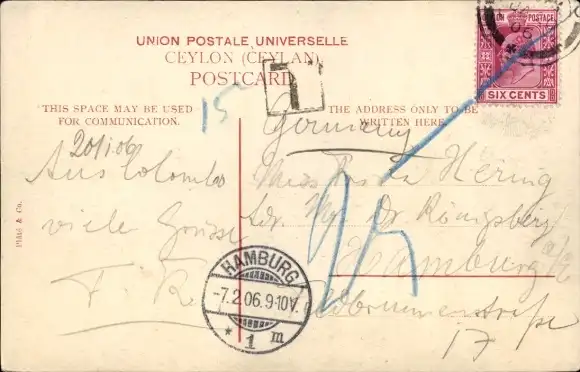 UNION POSTALE UNIVERSELLE
CEYLON (CEYLAN)
POSTCARD
THIS SPACE MAY BE USED
FOR COMMUNICATION.
THE ADDRESS ONLY TO BE
WRITTEN HERE.
POSTAGE
SIX CENTS
06
T
15
Germany
20/1.06
Aus Colombo
viele Grüsse
F.
Miss Hering
Adr. Dr Königsberg
Hamburg
17
25
Plâté & Co.
HAMBURG
-7.2.06.9-10V.
* 1 m